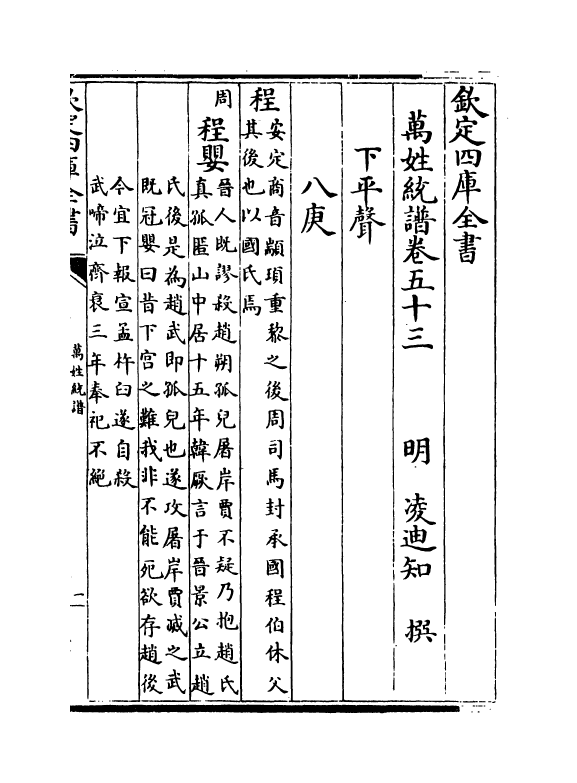 欽定四庫全書
萬姓統譜卷五十三
明 凌迪知 撰
下平聲
八庚
程
安定商音顓頊重黎之後周司馬封承國程伯休父
其後也以國氏焉
周
程嬰
晉人既謬殺趙朔孤兒屠岸賈不疑乃抱趙氏
真孤匿山中居十五年韓厥言于晉景公立趙
氏後是為趙武即孤兒也遂攻屠岸賈滅之武
既冠嬰曰昔下宮之難我非不能死欲存趙後
今宜下報宣孟杵臼遂自殺
武啼泣齊衰三年奉祀不絕
欽定四庫全書
萬姓統譜